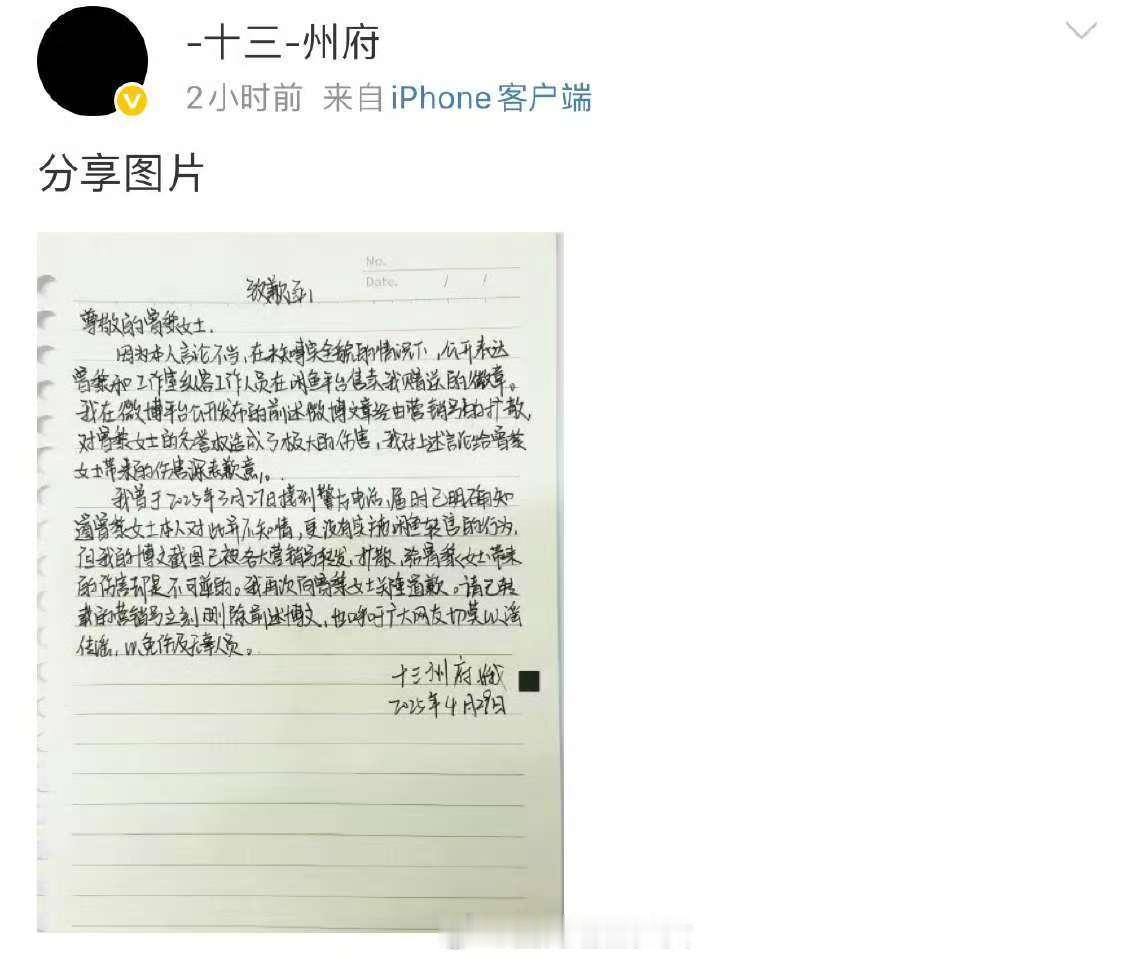 -十三-州府
2小时前 来自 iPhone客户端
分享图片
No.
Date. / /
致歉函
尊敬的曾黎女士,
因为本人言论不当,在未得完全核实的情况下,公开表达
曾黎和工作室纵容工作人员在闲鱼平台售卖我赠送的徽章。
我在微博平台公开发布的前述微博文章经由营销号的扩散,
对曾黎女士的名誉权造成了极大的伤害,我对上述言论给曾黎
女士带来的伤害深表歉意。
我曾于2025年3月27日接到警方电话,届时已明确知
道曾黎女士本人对此并不知情,更没有实施闲鱼转售的行为,
但我的博文截图已被各大营销号转发、扩散,给曾黎女士带来
的伤害却是不可逆的。我再次向曾黎女士郑重道歉。请已转
载的营销号立刻删除前述博文,也呼吁广大网友切莫以谣
传谣,以免伤及无辜人员。
十三州府
2025年4月29日